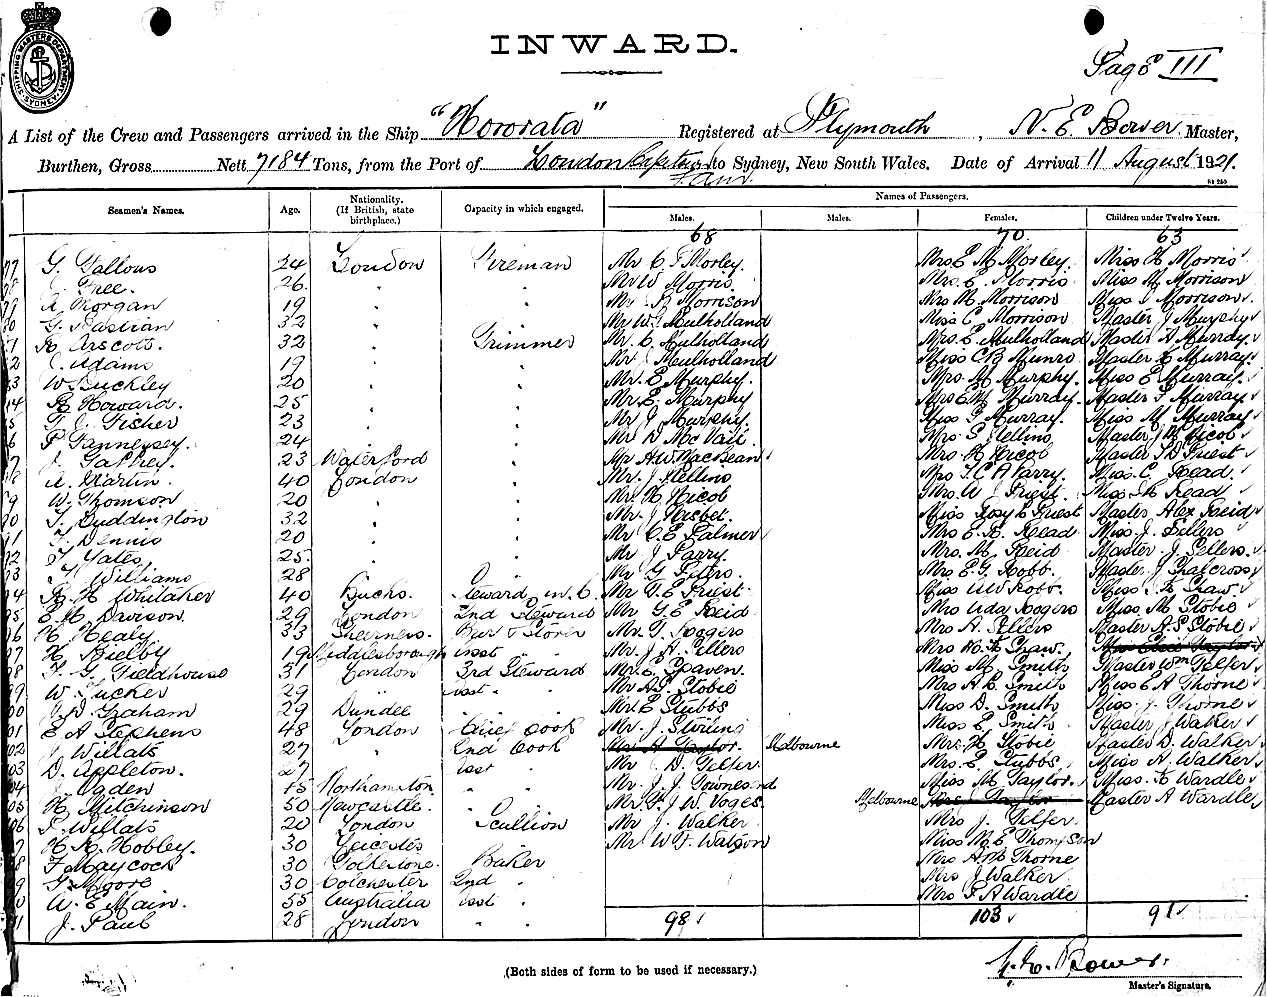 SHIPPING MASTER'S DEPARTMENT SYDNEY
INWARD.
Page III
A List of the Crew and Passengers arrived in the Ship "Hororata" Registered at Plymouth, N. E. Bower Master,
Burthen, Gross Nett 7184 Tons, from the Port of London to Sydney, New South Wales. Date of Arrival 11 August 1921.
Seamen's Names. Age. Nationality. (If British, state birthplace.) Capacity in which engaged. Names of Passengers.
Males. Males. Females. Children under Twelve Years.
68 70 63
G. Fallows 24 London Fireman Mr C F Morley. Mrs E M Morley. Miss H Morris
Free. 26. " " Mr W Morris. Mrs E Morris Miss M Morrison
A Morgan 19 " " Mr R Morrison Mrs M Morrison Miss J Morrison
G. Bastian 32 " " Mr W G Mulholland Miss E Morrison Master J Murphy
A. Arscott. 32 " Trimmer Mr C Mulholland Mrs E Mulholland Master A Murray
C. Adams 19 " " Mr J Mulholland Miss C B Munro Master H Murray.
W Buckley 20 " " Mr. E Murphy. Mrs M Murphy. Miss E Murray.
R Howard. 25 " " Mr E. Murphy Mrs E M Murray. Master F Murray
T. J. Fisher 23 " " Mr J Murphy. Miss E Murray. Miss M Murray
P Fannessey. 24 " " Mr D McVail Mrs E Nellins Master J M Nicol
J. Gaffney. 23 Waterford " Mr A W MacBean Mrs H Nicol Master T D Priest
A Martin. 40 London " Mr. J Nellins Mrs T C A Parry. Miss C Read
W. Thomson 20 " " Mr H Nicol Mrs W J Priest. Miss M Read
T. Duddington 32 " " Mr. J Nisbet. Miss Josy E Priest Master Alex Reid
T. Dennis 20 " " Mr C E Palmer Mrs E B. Read Miss J. Sellers
T Yates, 25. " " Mr J Parry. Mrs. M. Reid Master J. Sellers.
T Williams 28 " " Mr G Peters. Mrs E. G. Robb. Master J Shalcross
R H Whitaker 40 Bucks. Steward in C. Mr T. E Priest Miss A W Robb. Miss J L Shaw.
E H Davison. 29 London 2nd Steward Mr G. E Reid Mrs Ada Rogers Miss M Stobie
H Healy 33 Sheerness. Beer & Storer Mr. T. Rogers Mrs A. Sellers Master A S Stobie
H Bielby 19 Middlesborough asst " Mr. J A Sellers Mrs H Shaw.
T. G. Fieldhouse 31 London 3rd Steward Mr. E Spaven. Miss M. Smith Master Wm Telfer
W. Tucker 29 " asst. " Mr A S Stobie Mrs A E. Smith Miss E A Thorne
W. D. Graham 29 Dundee " " Mr. E Stubbs Miss D. Smith Miss. J. Thorne
E A Stephens 48 London Chief Cook Mr. J. Stirling Miss E Smith Master J Walker
J Willats 27 " 2nd Cook Mr A Taylor. Melbourne Mrs. H Stobie Master D. Walker
D. Appleton. 27 " asst " Mr D. Telfer. Mrs. E. Stubbs Miss A Walker
J Ogden 15 Northampton " " Mr. J. J. Townsend Miss M. Taylor. Miss. H Wardle
H. Mitchinson 50 Newcastle. " " Mr. F J W Voges Melbourne Mrs Taylor Master A Wardle
S. Willats 20 London Scullion Mr J. Walker Mrs J. Telfer
H. H. Hobley. 30 Leicester Mr W J Watson Miss N. E Thompson
F. Haycock 30 Folkestone. Baker Mrs A M Thorne
G Moore 30 Colchester 2nd " Mrs J Walker
W. E. Main. 35 Australia asst. " Mrs F A Wardle
J. Paul 28 London " " 98 103 91
(Both sides of form to be used if necessary.)
N. E. Bower.
Master's Signature.